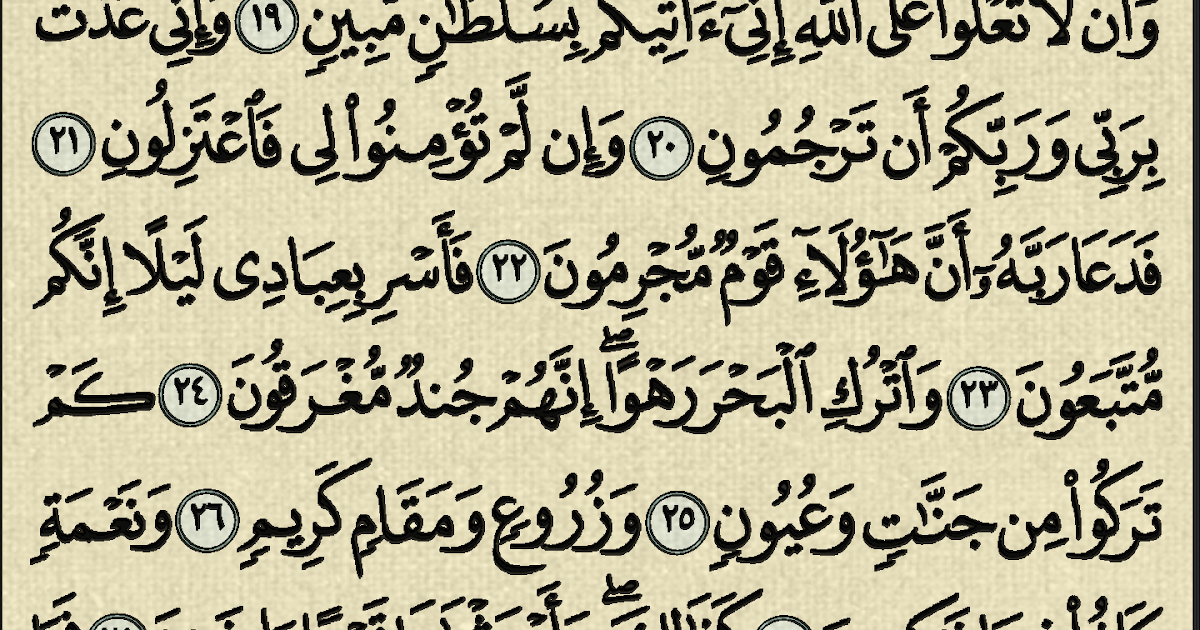 وَأَن لَّا تَعْلُوا۟ عَلَى ٱللَّهِ إِنِّىٓ ءَاتِيكُم بِسُلْطَٰنٍ مُّبِينٍ ١٩ وَإِنِّى عُذْتُ
بِرَبِّى وَرَبِّكُمْ أَن تَرْجُمُونِ ٢٠ وَإِن لَّمْ تُؤْمِنُوا۟ لِى فَٱعْتَزِلُونِ ٢١
فَدَعَا رَبَّهُۥٓ أَنَّ هَٰٓؤُلَآءِ قَوْمٌ مُّجْرِمُونَ ٢٢ فَأَسْرِ بِعِبَادِى لَيْلًا إِنَّكُم
مُّتَّبَعُونَ ٢٣ وَٱتْرُكِ ٱلْبَحْرَ رَهْوًا ۖ إِنَّهُمْ جُندٌ مُّغْرَقُونَ ٢٤ كَمْ
تَرَكُوا۟ مِن جَنَّٰتٍ وَعُيُونٍ ٢٥ وَزُرُوعٍ وَمَقَامٍ كَرِيمٍ ٢٦ وَنَعْمَةٍ